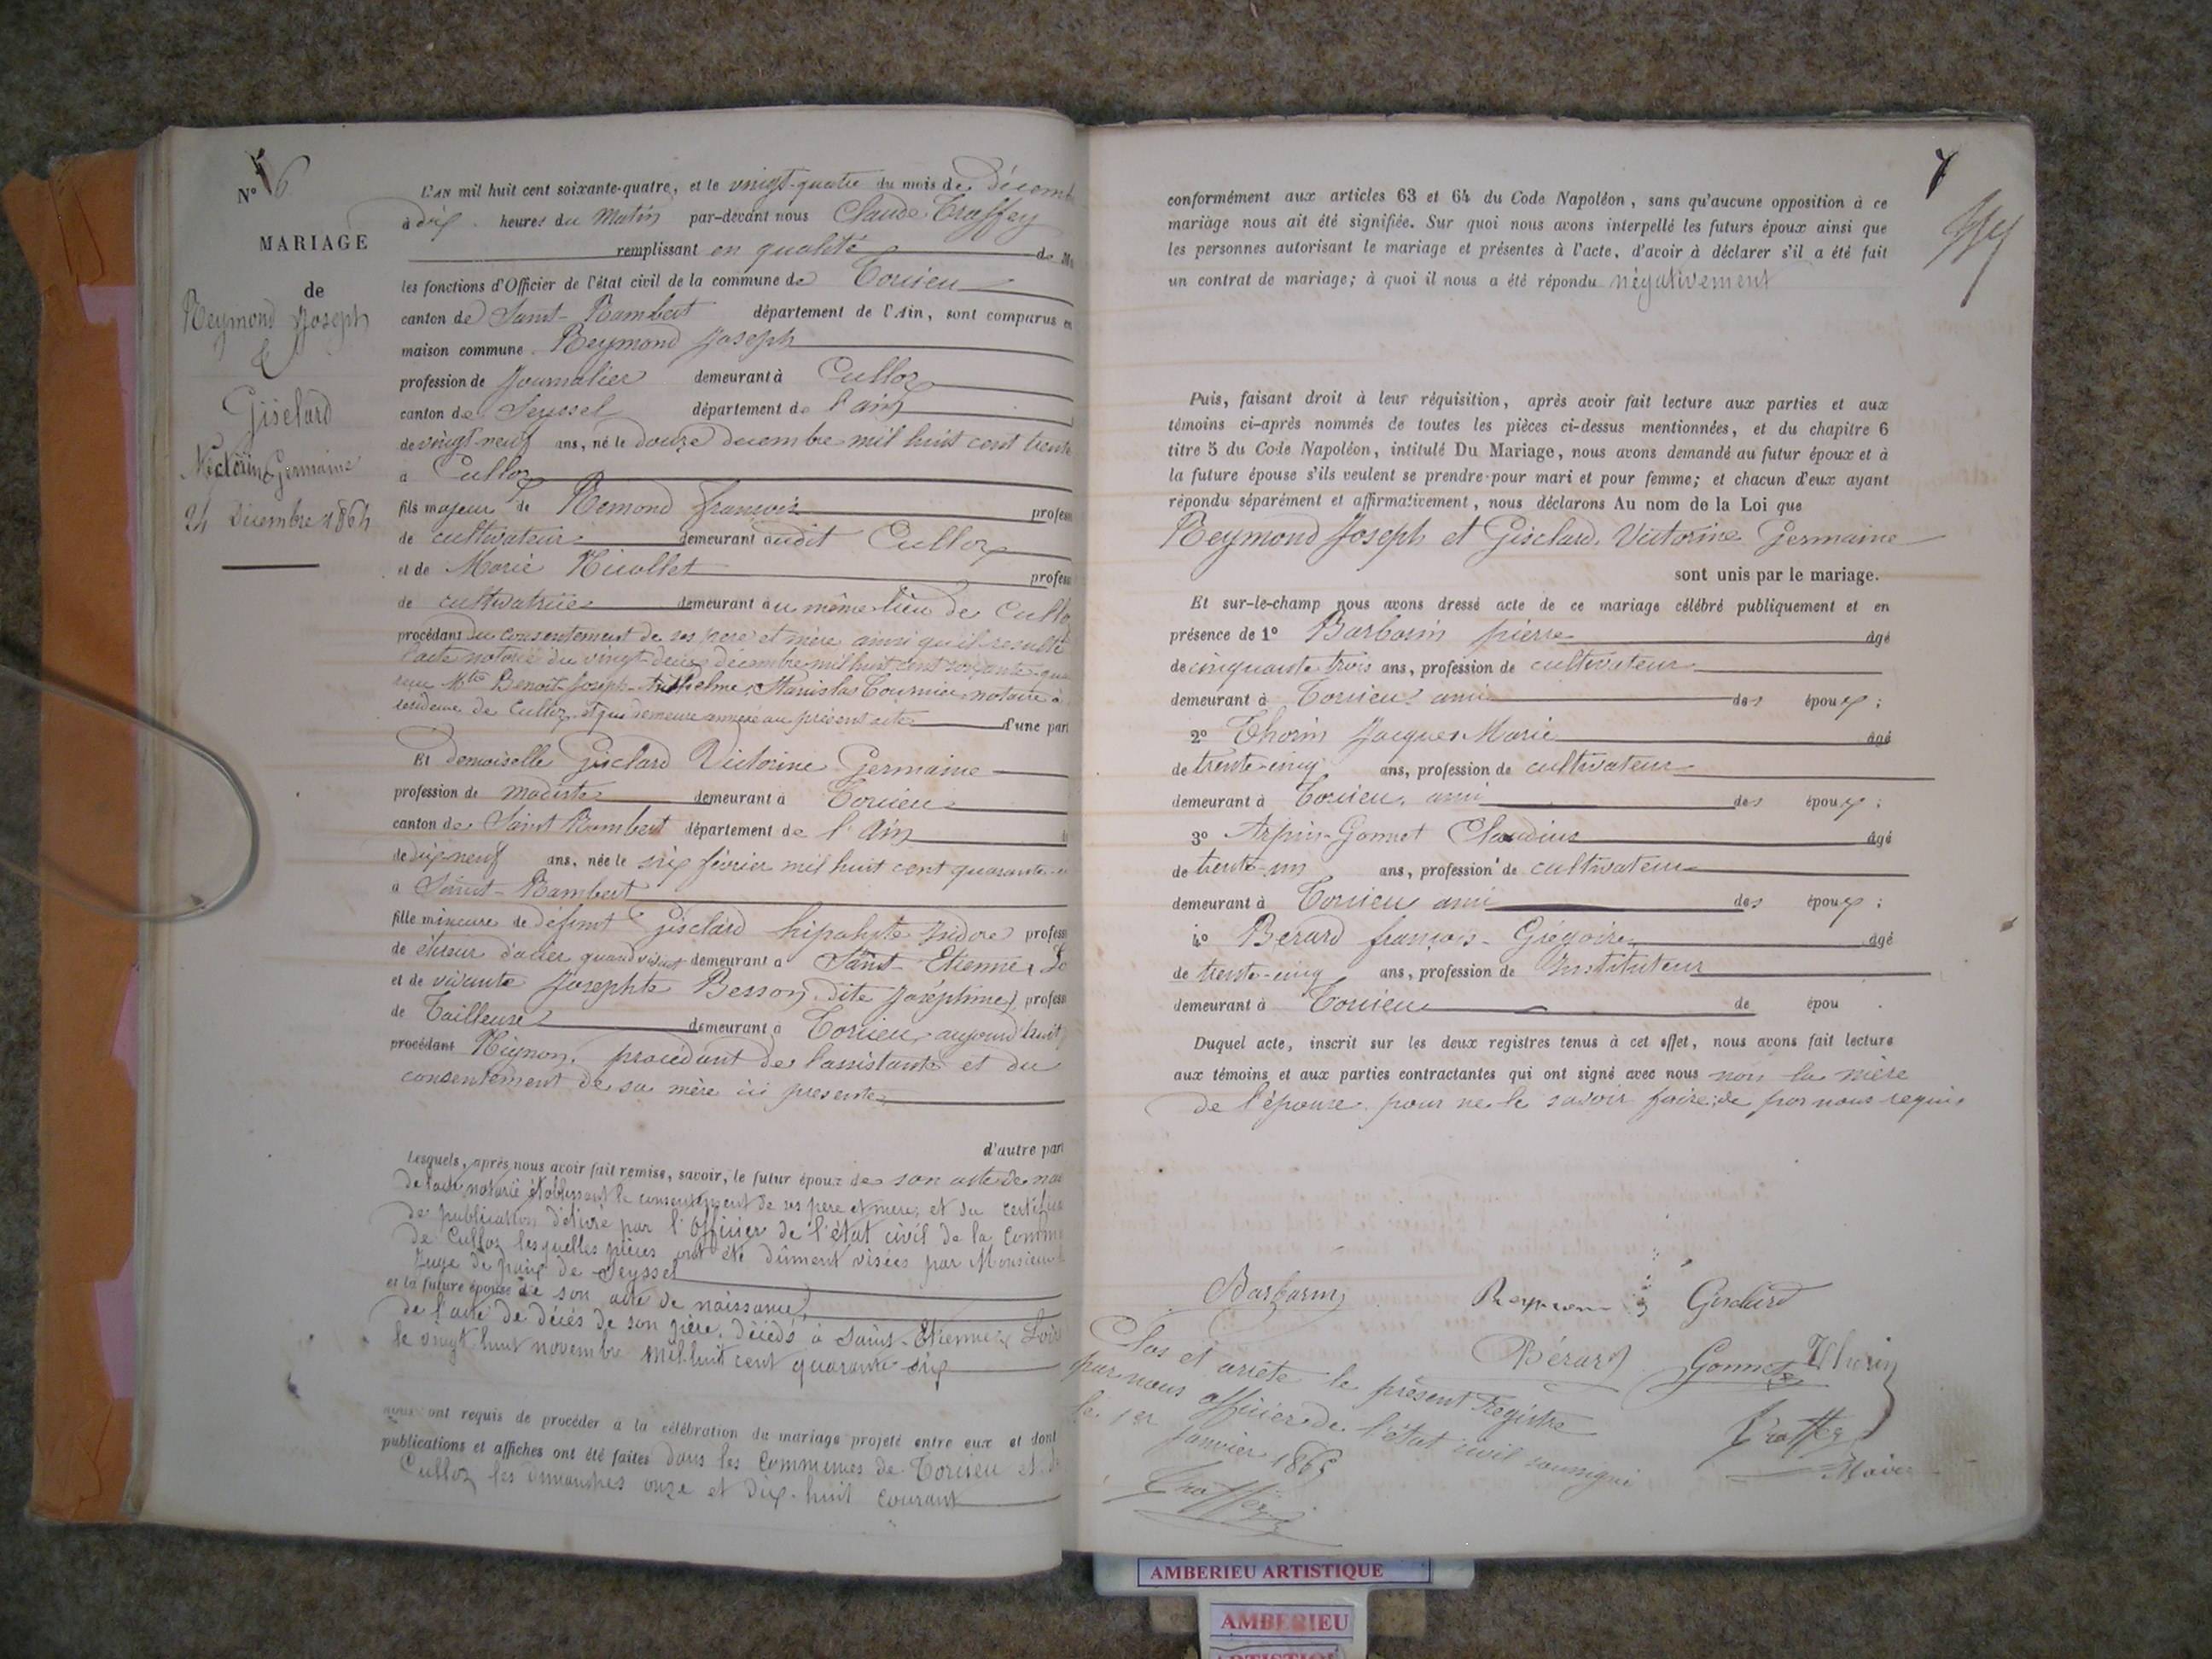 N° 6
MARIAGE
de
Reymond Joseph
&
Giselard
Victorine Germaine
24 Décembre 1864
L'AN mil huit cent soixante-quatre, et le vingt-quatre du mois de Décemb
à dix heures du Matin par-devant nous Claude Traffey
remplissant en qualité de M
les fonctions d'Officier de l'état civil de la commune de Torcieu
canton de Saint-Rambert département de l'Ain, sont comparus en
maison commune Reymond Joseph
profession de Journalier demeurant à Culloz
canton de Seyssel département de l'ain
de vingt neuf ans, né le douze decembre mil huit cent trente
à Culloz
fils majeur de Remond françois profess
de cultivateur demeurant audit Culloz
et de Marie Nicollet profess
de cultivatrice demeurant au même lieu de Cullo
procédant du consentement de ses pere et mère ainsi qu'il resulte
l'acte notarié du vingt-deux décembre mil huit cent soixante-qua
reçu Mte Benoit-Joseph-Anthelme, Stanislas Tournier notaire à
residence de Culloz, et qui demeure annexé au présent acte d'une part
Et Demoiselle Gisclard Victorine Germaine
profession de modiste demeurant à Torcieu
canton de Saint Rambert département de l'Ain
de dix neuf ans, née le six février mil huit cent quarante-
à Saint-Rambert
fille mineure de défunt Gisclard hipolyte Isidore profess
de étireur d'acier quand vivait demeurant à Saint-Etienne, Lo
et de vivante Josephte Besson, dite Joséphine, profess
de Tailleuse demeurant à Torcieu aujourd'huit
procédant Mignon, procédant de l'assistante et du
consentement de sa mère ici presente
d'autre part
Lesquels, après nous avoir fait remise, savoir, le futur époux de son acte de nai
de l'acte notarié établissant le consentement de ses pere et mere; et du certifica
de publication délivré par l'Officier de l'état civil de la Commu
de Culloz lesquelles pièces ont été dûment visées par Monsieur l
Juge de paix de Seyssel
et la future épouse de son acte de naissance,
de l'acte de décès de son père, décédé à Saint-Etienne, Loir
le vingt huit novembre mil huit cent quarante-six
nous ont requis de procéder à la célébration du mariage projeté entre eux et dont
publications et affiches ont été faites dans les Communes de Torcieu et d
Culloz les dimanches onze et dix-huit courant
7
conformément aux articles 63 et 64 du Code Napoléon, sans qu'aucune opposition à ce
mariage nous ait été signifiée. Sur quoi nous avons interpellé les futurs époux ainsi que
les personnes autorisant le mariage et présentes à l'acte, d'avoir à déclarer s'il a été fait
un contrat de mariage; à quoi il nous a été répondu négativement
Puis, faisant droit à leur réquisition, après avoir fait lecture aux parties et aux
témoins ci-après nommés de toutes les pièces ci-dessus mentionnées, et du chapitre 6
titre 5 du Code Napoléon, intitulé Du Mariage, nous avons demandé au futur époux et à
la future épouse s'ils veulent se prendre pour mari et pour femme; et chacun d'eux ayant
répondu séparément et affirmativement, nous déclarons Au nom de la Loi que
Reymond Joseph et Gisclard, Victorine Germaine
sont unis par le mariage.
Et sur-le-champ nous avons dressé acte de ce mariage célébré publiquement et en
présence de 1° Barbarin pierre âgé
de cinquante trois ans, profession de cultivateur
demeurant à Torcieu ami des époux ;
2° Thorin Jacques Marie âgé
de trente-cinq ans, profession de cultivateur
demeurant à Torcieu, ami des époux ;
3° Arpin-Gonnet Claudius âgé
de trente-un ans, profession de cultivateur
demeurant à Torcieu ami des époux ;
4° Bérard françois-Grégoire âgé
de trente-cinq ans, profession de Instituteur
demeurant à Torcieu de épou .
Duquel acte, inscrit sur les deux registres tenus à cet effet, nous avons fait lecture
aux témoins et aux parties contractantes qui ont signé avec nous non la mère
de l'épouse pour ne le savoir faire; de par nous requis
Barbarin Reymond Gisclard
Bérard Gonnet Thorin
Traffey
Maire
Clos et arrêté le présent Registre
par nous officier de l'état civil soussigné
le 1er Janvier 1865
Traffey
AMBERIEU ARTISTIQUE
AMBERIEU
ARTISTIQUE